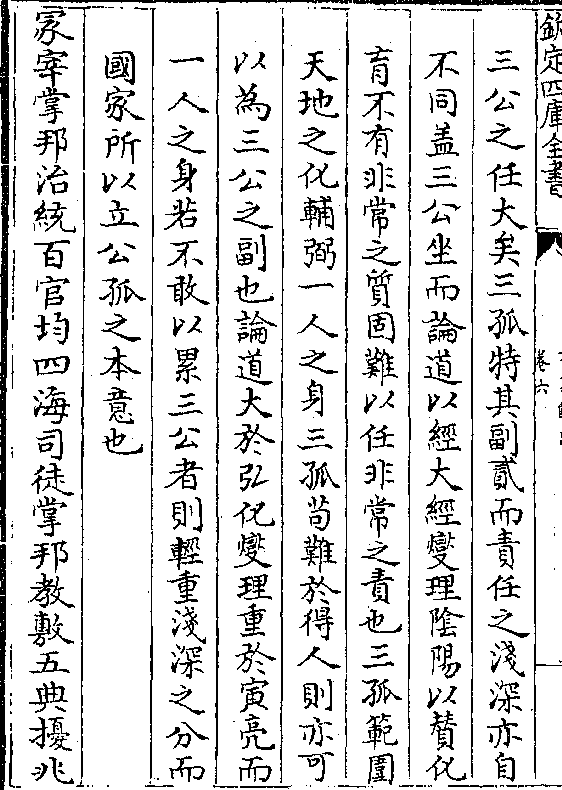 欽定四庫全書
卷六
三公之任大矣三孤特其副貳而責任之淺深亦自
不同盖三公坐而論道以經大經燮理陰陽以賛化
育不有非常之質固難以任非常之責也三孤範圍
天地之化輔弼一人之身三孤茍難於得人則亦可
以為三公之副也論道大於弘化燮理重於寅亮而
一人之身若不敢以累三公者則輕重淺深之分而
國家所以立公孤之本意也
冡宰掌邦治統百官均四海司徒掌邦教敷五典擾兆